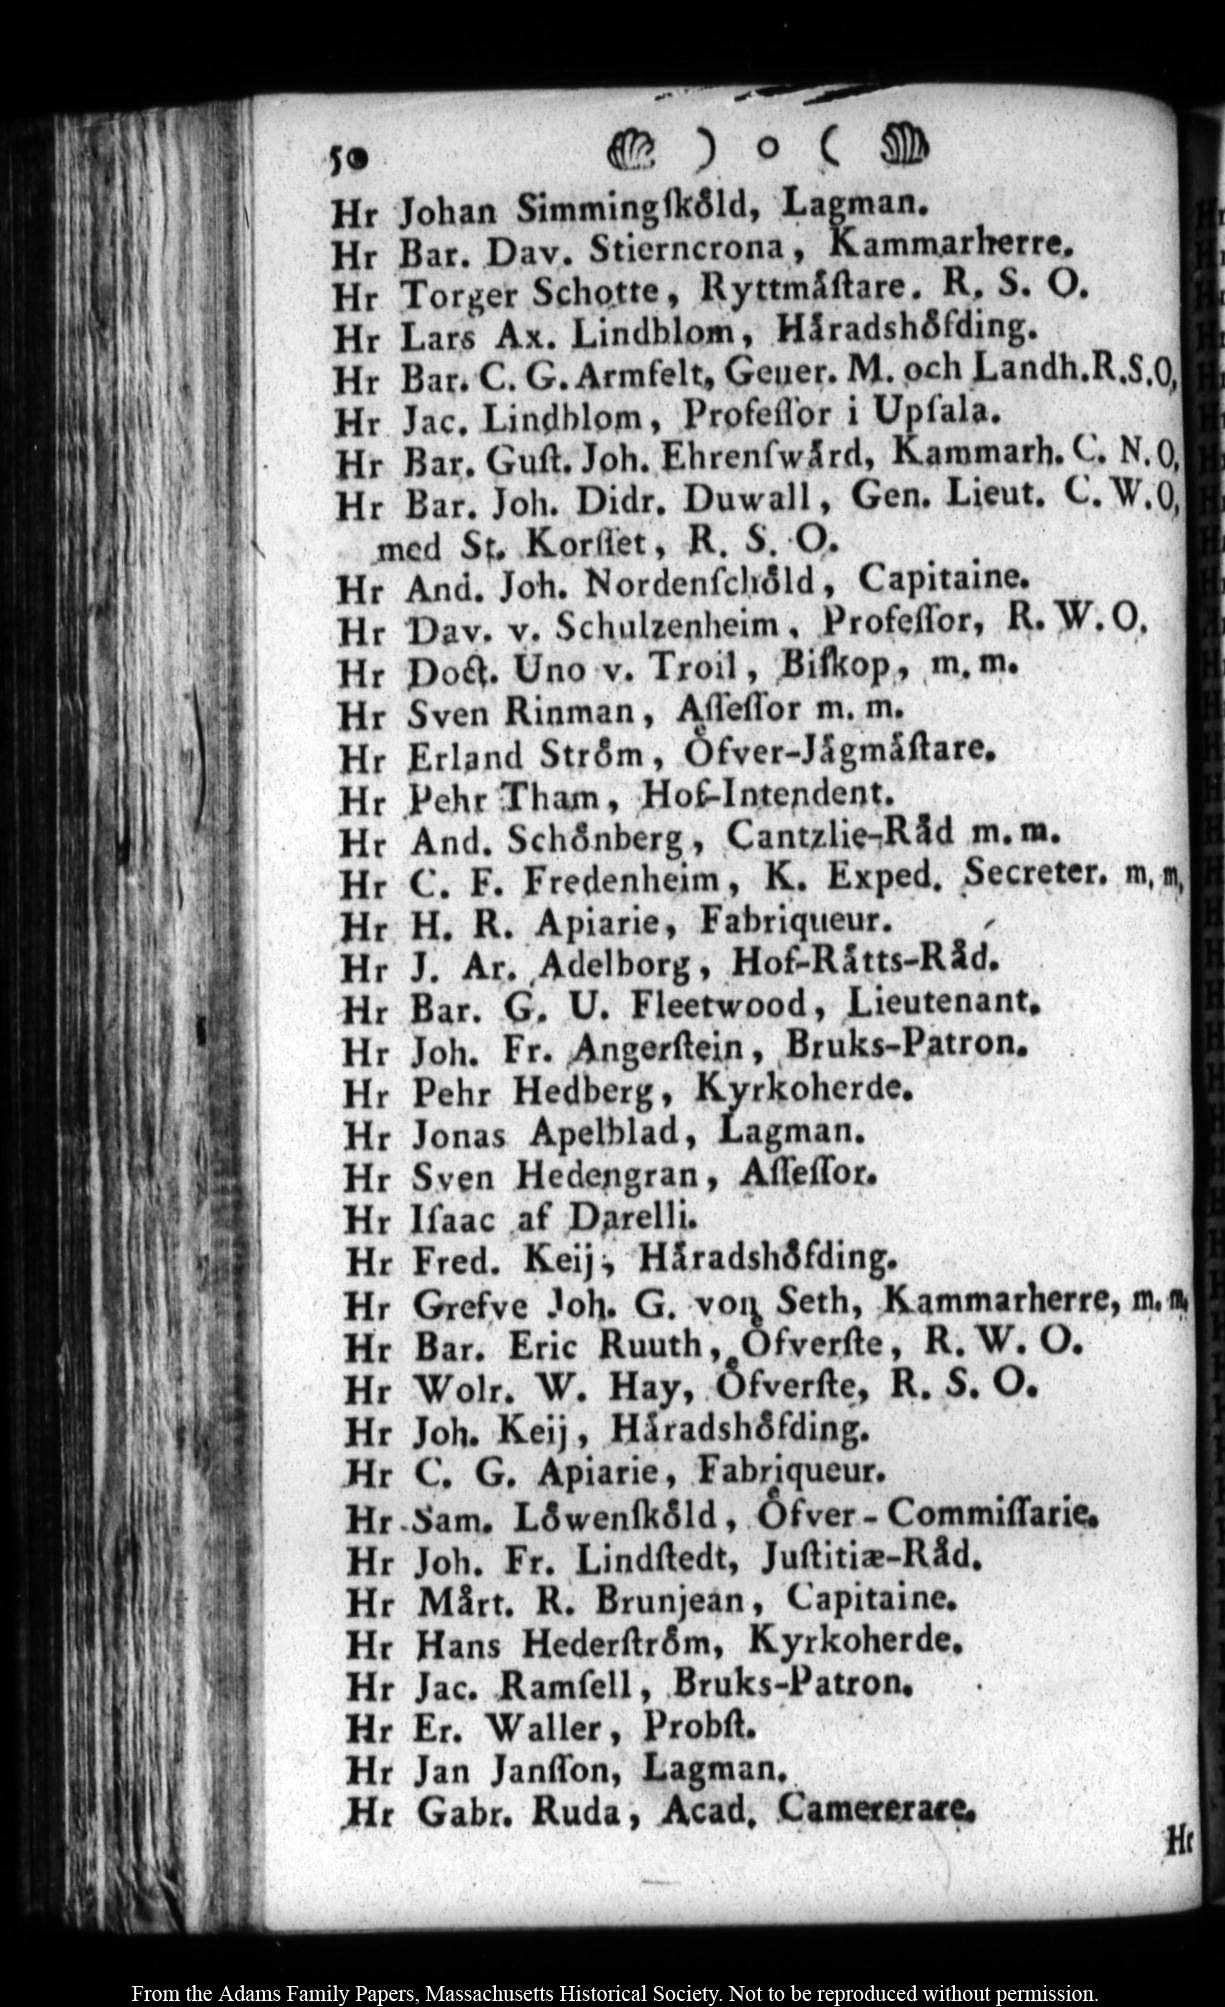 50 ) o (
Hr Johan Simmingſkåld, Lagman.
Hr Bar. Dav. Stierncrona, Kammarherre.
Hr Torger Schotte, Ryttmåſtare. R. S. O.
Hr Lars Ax. Lindblom, Håradshåfding.
Hr Bar. C. G. Armfelt, Gener. M. och Landh. R.S.O,
Hr Jac. Lindblom, Profeſſor i Upſala.
Hr Bar. Guſt. Joh. Ehrenſwård, Kammarh. C. N. O,
Hr Bar. Joh. Didr. Duwall, Gen. Lieut. C. W. O,
med St. Korſſet, R. S. O.
Hr And. Joh. Nordenſchåld, Capitaine.
Hr Dav. v. Schulzenheim, Profeſſor, R. W. O.
Hr Doct. Uno v. Troil, Biſkop, m. m.
Hr Sven Rinman, Aſſeſſor m. m.
Hr Erland Stroͤm, Oͤfver-Jågmåſtare.
Hr Pehr Tham, Hof-Intendent.
Hr And. Schoͤnberg, Cantzlie-Råd m. m.
Hr C. F. Fredenheim, K. Exped. Secreter. m, m,
Hr H. R. Apiarie, Fabriqueur.
Hr J. Ar. Adelborg, Hof-Råtts-Råd.
Hr Bar. G. U. Fleetwood, Lieutenant.
Hr Joh. Fr. Angerſtein, Bruks-Patron.
Hr Pehr Hedberg, Kyrkoherde.
Hr Jonas Apelblad, Lagman.
Hr Sven Hedengran, Aſſeſſor.
Hr Iſaac af Darelli.
Hr Fred. Keij, Håradshoͤfding.
Hr Grefve Joh. G. von Seth, Kammarherre, m. m.
Hr Bar. Eric Ruuth, Oͤfverſte, R. W. O.
Hr Wolr. W. Hay, Oͤfverſte, R. S. O.
Hr Joh. Keij, Håradshoͤfding.
Hr C. G. Apiarie, Fabriqueur.
Hr Sam. Loͤwenſkoͤld, Oͤfver-Commiſſarie.
Hr Joh. Fr. Lindſtedt, Juſtitiæ-Råd.
Hr Mårt. R. Brunjean, Capitaine.
Hr Hans Hederſtroͤm, Kyrkoherde.
Hr Jac. Ramſell, Bruks-Patron.
Hr Er. Waller, Probſt.
Hr Jan Janſſon, Lagman.
Hr Gabr. Ruda, Acad. Camererare.
Hr
From the Adams Family Papers, Massachusetts Historical Society. Not to be reproduced without permission.